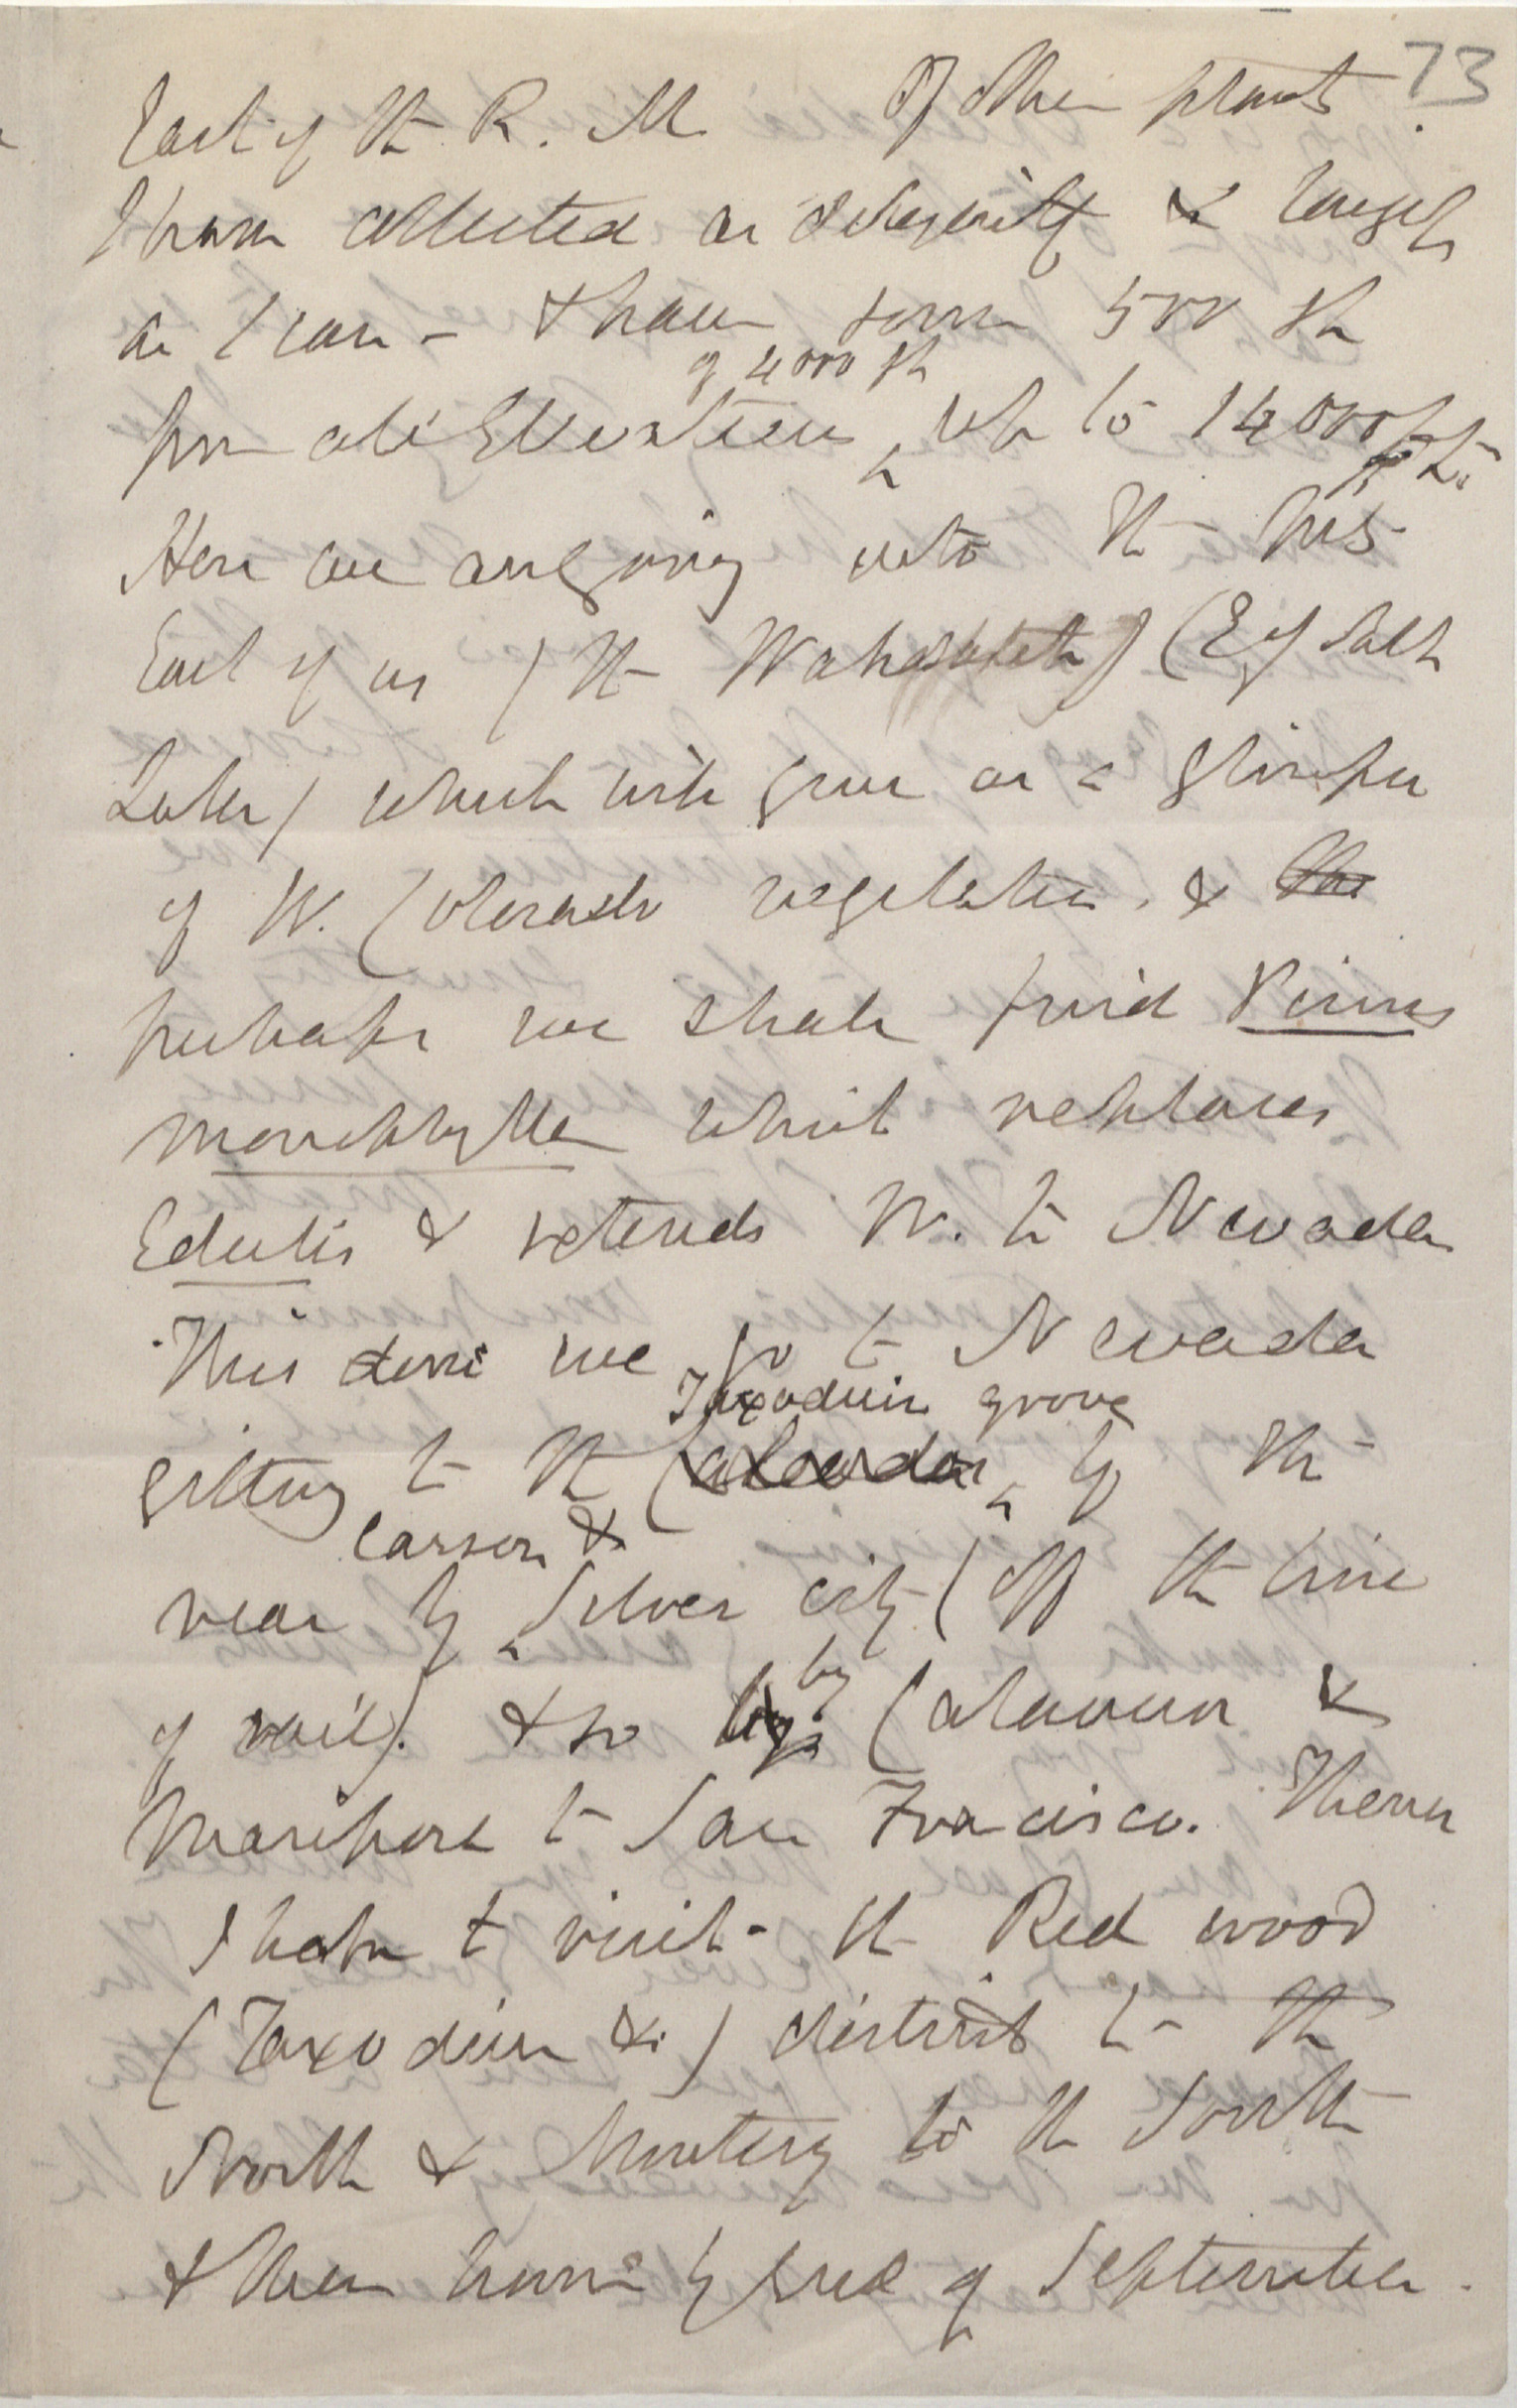 73
East of the R. M. Of other plants
I have collected as diligently & largely
as I can – & have some 500 sp
from all Elevations of 4000 ft up to 14000 ft.
Here we are going into the Mts
East of us / the Wahsatch) (E of Salt
Lake) which will give us a glimpse
of W. Colorado vegetation. & the
perhaps we shall find Pinus
monophylla which replaces
Edulis & extends W. to Nevada
This done we go to Nevada
getting to the Calaveras Taxodium grove by the
rear by Carson & Silver city (off the line
of rail). & so by by Calaveras &
Mariposa to San Francisco. Thence
I hope to visit the Red wood
(Taxodium &c) district to the
North & Monterey to the South
& then home by end of September.